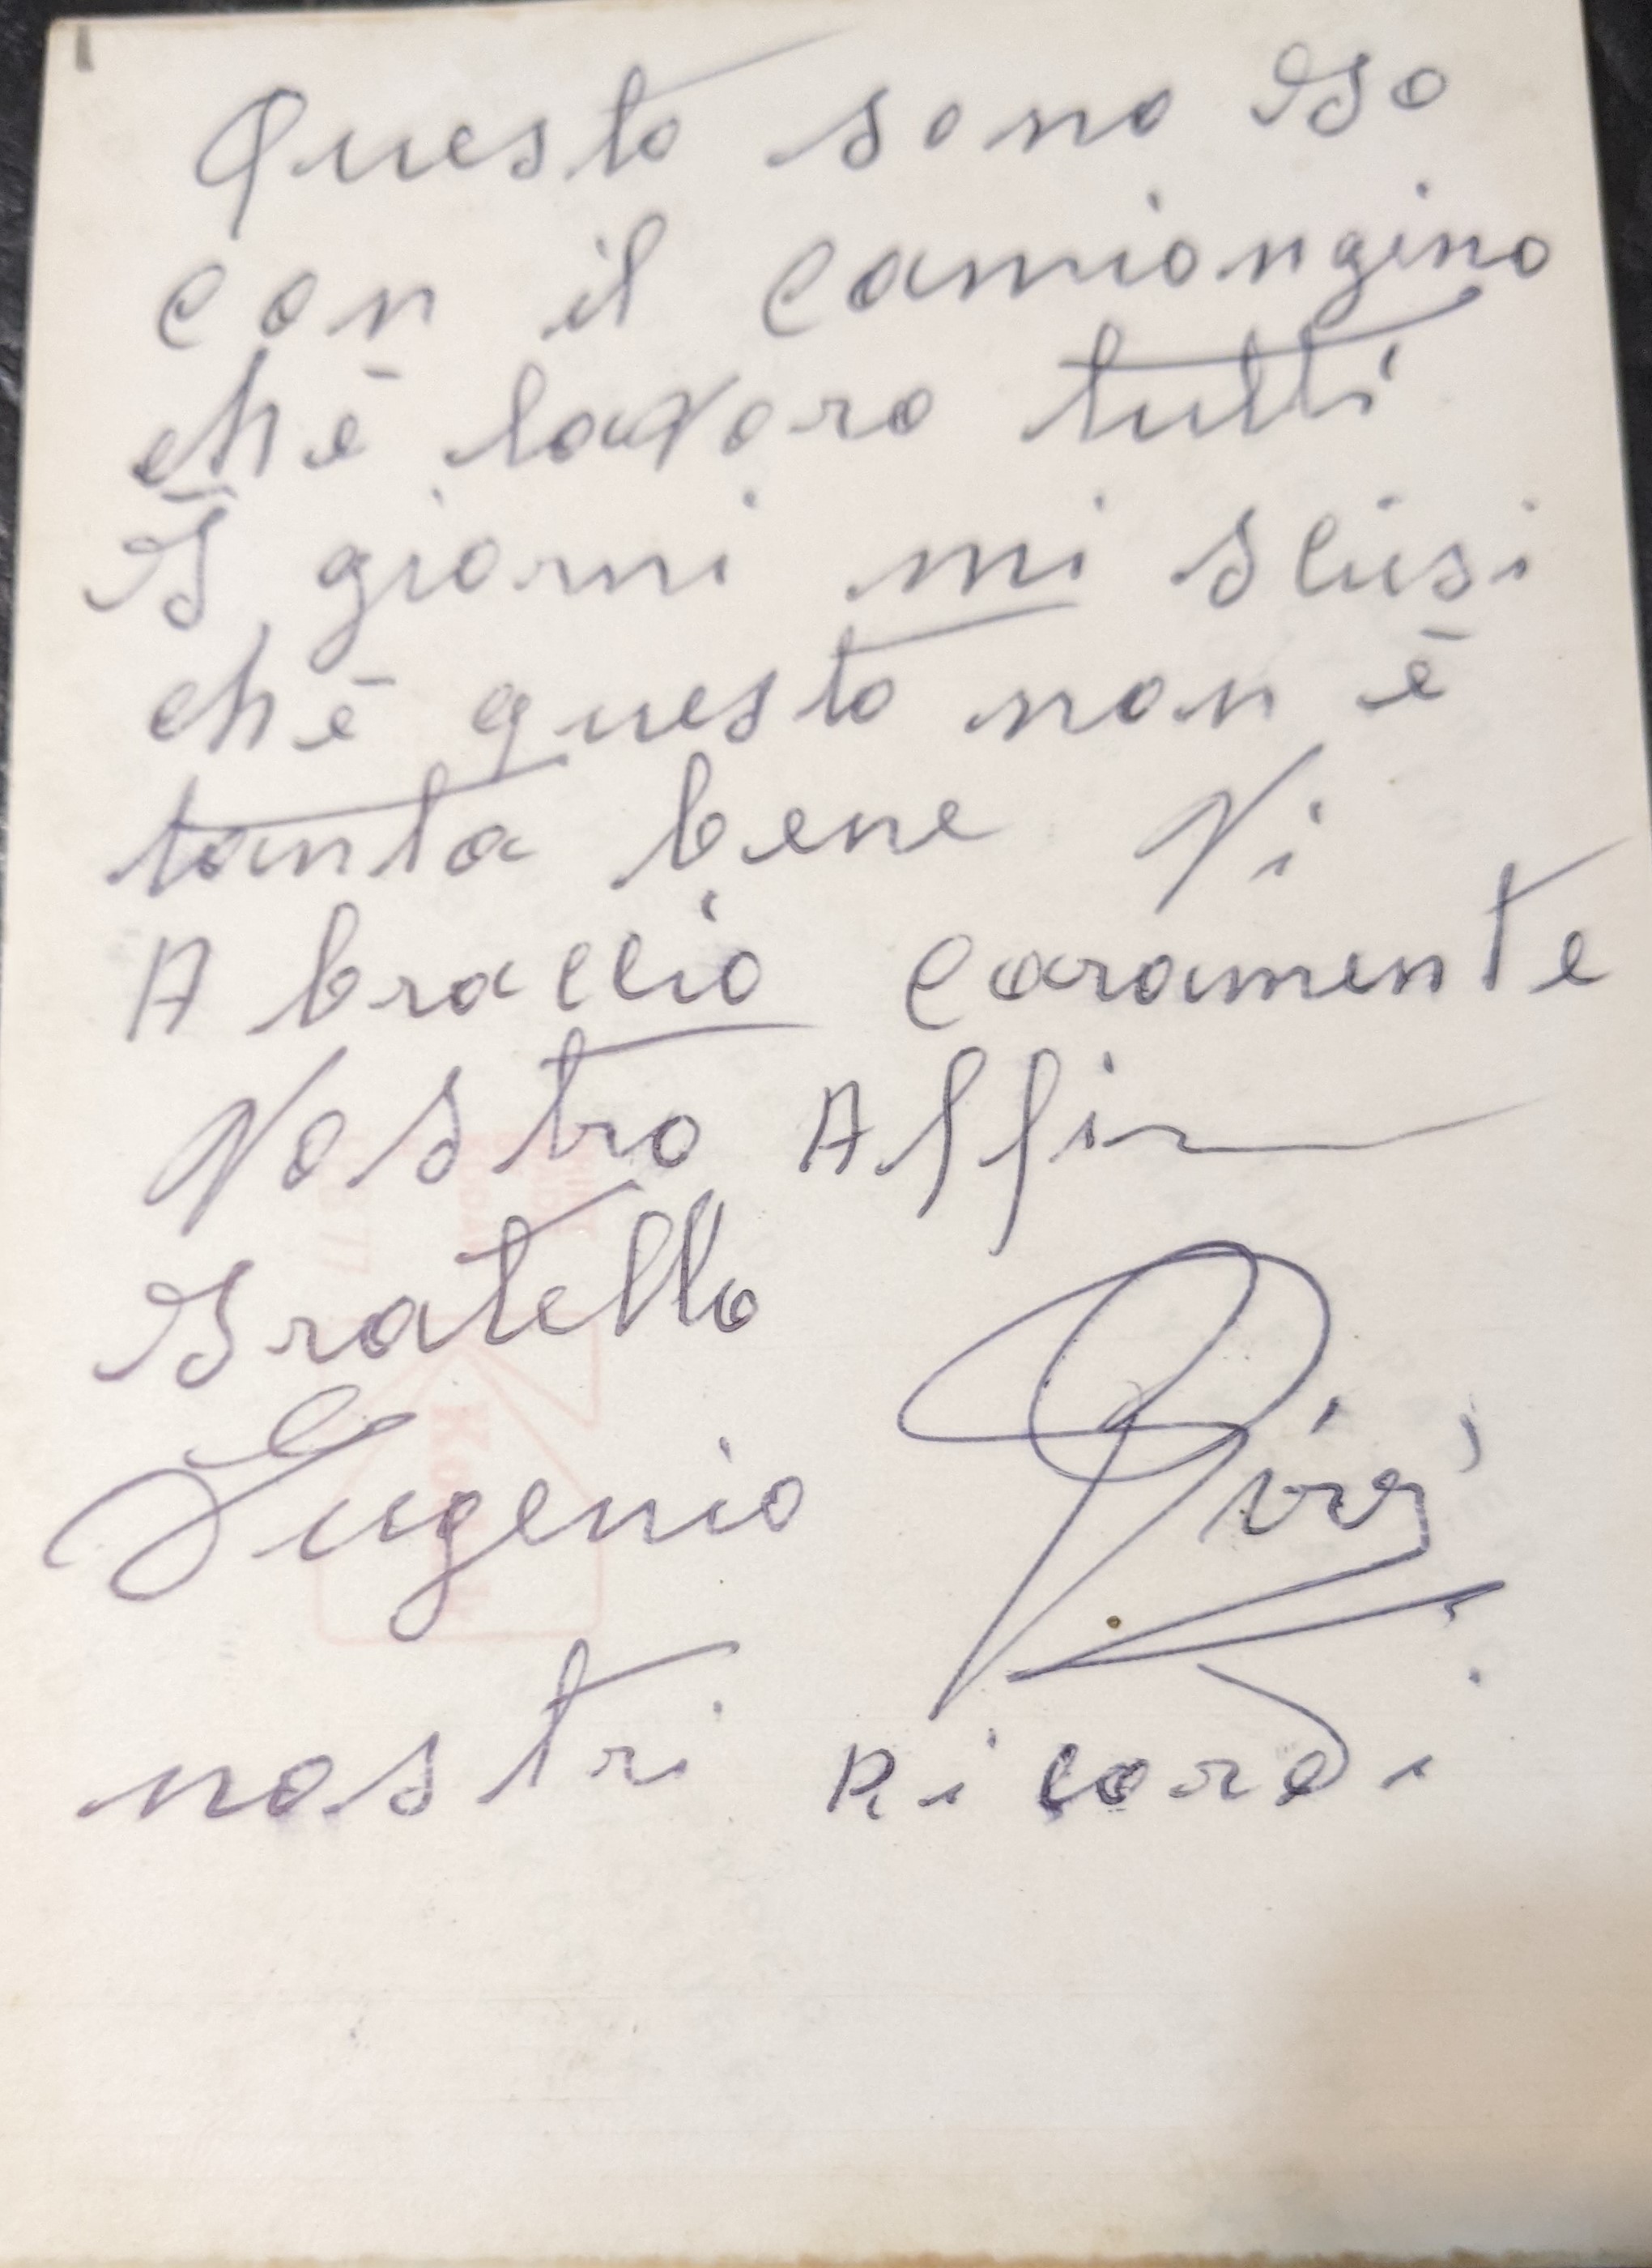 Questo sono Io
con il camiongino
chē lavoro tutti
I giorni mi scusi
chē questo non ē
tanta bene Vi
A braccio caramente
Vostro Affin
Fratello
Eugenio
nostri Ricordi